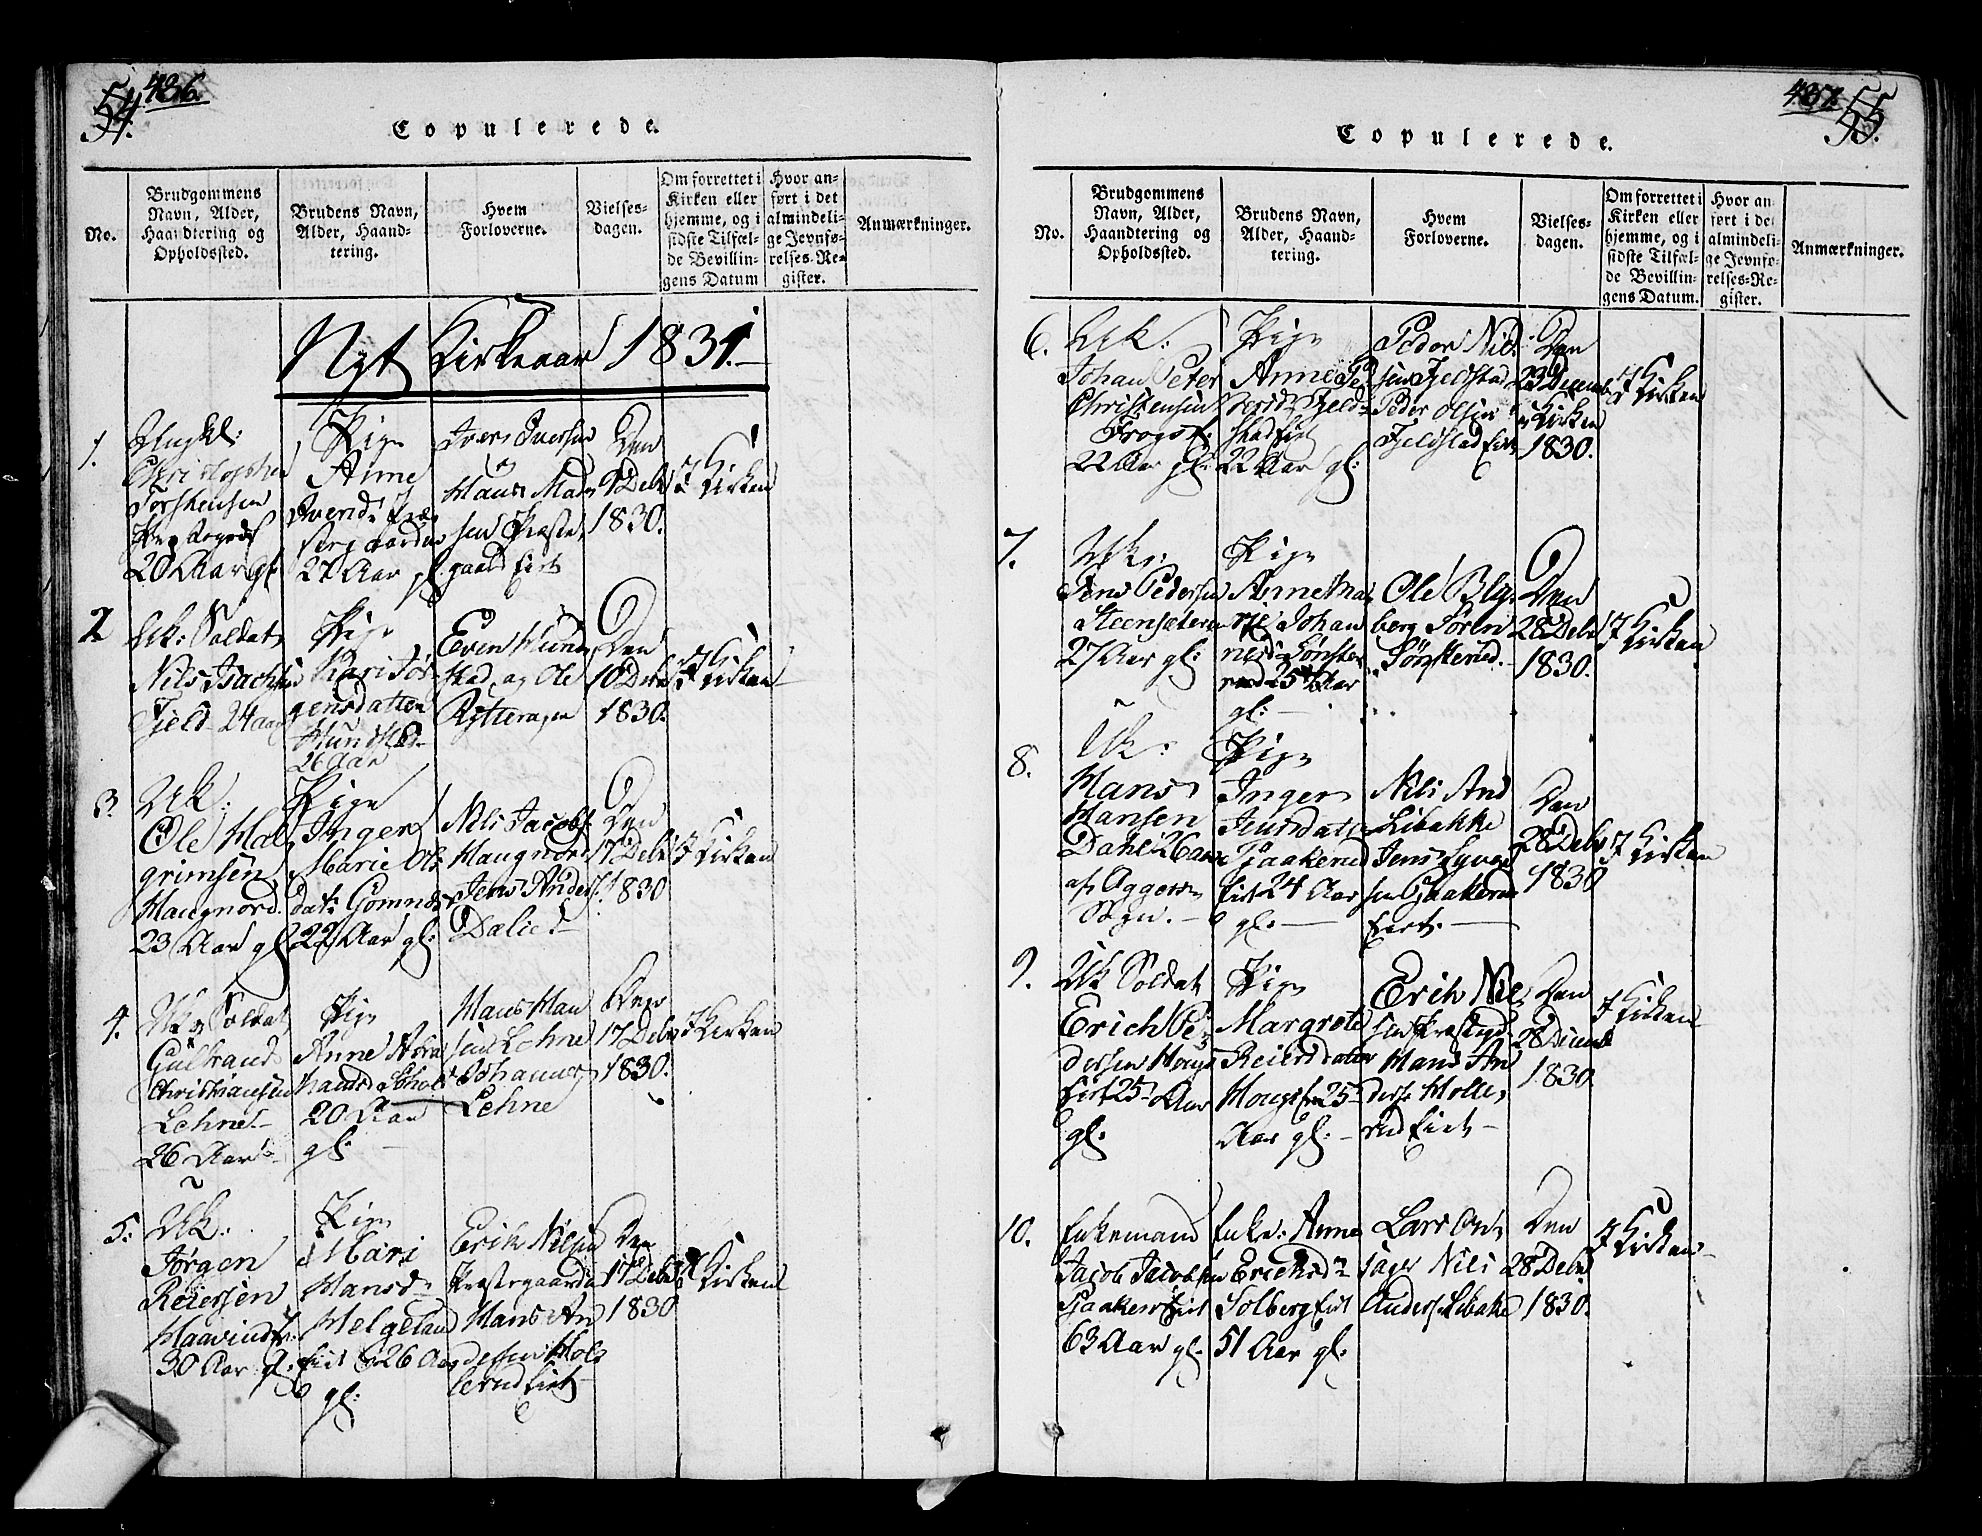 54. 436.
Copulerede.
No.
Brudgommens
Navn, Alder,
Haandtering og
Opholdssted.
Brudens Navn,
Alder, Haand-
tering.
Hvem
Forloverne.
Vielses-
dagen.
Om forrettet i
Kirken eller
hjemme, og i
sidste Tilfæl-
de Bevillin-
gens Datum
Hvor an-
ført i det
almindeli-
ge Jevnfø-
relses-Re-
gister.
Anmærkninger.
Nyt Kirkeaar 1831.
1.
Ungkl:
Christopher
Torstensen
20 Aar gl:
Pige
Anne
27 Aar gl:
Ivers Iversen
og
Hans Mad-
sen Præste-
gaards Eiet
Den
9 Debr
1830.
I Kirken
2
Uk: Soldat
Nils Isachsen
Fjeld 24 aar
Pige
Kari Jør-
gensdatter
Hundstad
26 Aar
Even Hund-
stad og Ole
Rytteragen
Den
10 Debr
1830.
I Kirken
3.
Uk:
Ole Hal-
grimsen
Haugnord.
23 Aar gl
Pige
Inger
Marie Ols-
dat: Gomnes
22 Aar gl:
Nils Jacobs.
Haugnord
Jens Anders
Dælie
Den
17 Debr
1830
I Kirken
4.
Uk Soldat
Gulbrand
Christiansen
Lehne
26 Aar
Pige
Anne Abra
hamsd
20 Aar
gl.
Hans Han
sen Lehne
Johannes
Lehne
Den
17 Debr
1830.
I Kirken
5.
Uk:
Jørgen
Reiersen
30 Aar gl.
Pige
Mari
Hansd
Helgeland
Eiet 26 Aar
gl:
Erik Nilsen
Præstegaards
Hans An
dersen Mole
rud Eiet
Den
17 Debr
1830
I Kirken
437. 55.
Copulerede.
No.
Brudgommens
Navn, Alder,
Haandtering og
Opholdssted.
Brudens Navn,
Alder, Haand-
tering.
Hvem
Forloverne.
Vielses-
dagen.
Om forrettet i
Kirken eller
hjemme, og i
sidste Tilfæl-
de Bevillin-
gens Datum.
Hvor an-
ført i det
almindeli-
ge Jevnfø-
relses-Re-
gister.
Anmærkninger.
6.
Uk:
Johan Peter
Christensen
22 Aar gl:
Pige
Anne Pe
dersd Fjeld
stad Eiet
22 Aar gl:
Peder Niel
sen Fjeldstad
Peder Olsen
Fjeldstad Eiet
Den
23 Decemb
i Kirken
1830.
I Kirken
7.
Uk:
Jens Pedersen
Steensæteren
27 Aar gl:
Pige
Anne Ma
rie Johan
nesd Sønste
rud 25 Aar
gl:
Ole Bly
berg Søren
Sønsterud.
Den
28 Debr
1830.
I Kirken
8.
Uk:
Hans
Hansen
Dahl 26 aar
af Aggers
Sogn.
Pige
Inger
Jensdat
Gaakerud
Eiet 24 Aar
gl:
Nils And
Libakke
Jens Syver
sen Gaakerud
Eiet.
Den
28 Debr
1830
I Kirken
9.
Uk Soldat
Erich Pe
dersen Hougs
Eiet 25 Aar
gl:
Pige
Margrete
Reiersdatter
25
Aar gl:
Erich Niel
sen Præstegd
Hans An
ders. Molle
rud Eiet
Den
28 Decemb
1830
I Kirken
10.
Enkemand
Jacob Jacobsen
Gaakerud Eiet
63 Aar gl.
Enke: Anne
Erichsd
Solberg Eiet
51 Aar gl:
Lars Ont
sager Nils
Anders. Libakke
Den
28 Debr
1830.
I Kirken